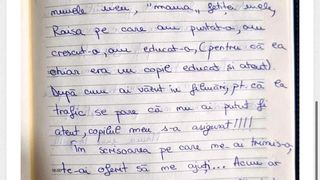 numele meu, "mama" fetiței mele,
Raisa pe care am purtat-o, am
crescut-o, am educat-o, (pentru că ea
chiar era un copil educat și atent).
După cum ai văzut în filmări, pt. că la
trafic se pare că nu ai putut fi
atent, copilul meu s-a asigurat!!!!
În scrisoarea pe care mi-ai trimis-o,
te-ai oferit să mă ajuți... Acum ar